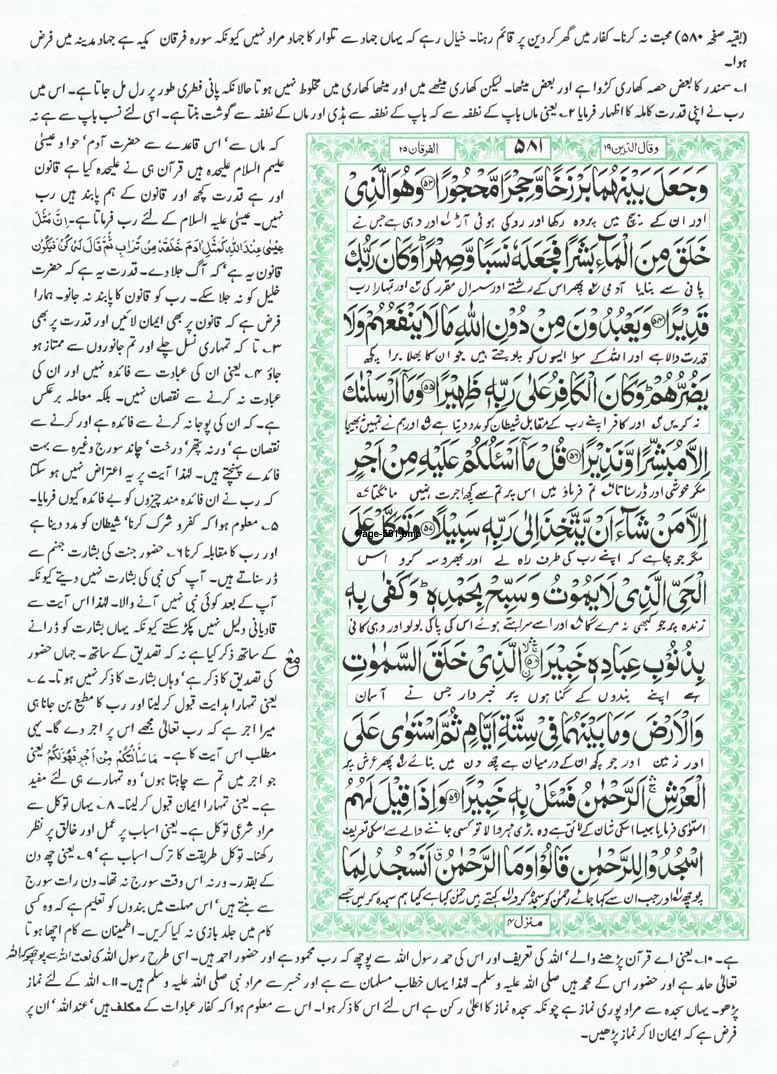 (بقیہ صفحہ ۵۸۰) محبت نہ کرنا۔ کفار میں گھر کر دین پر قائم رہنا۔ خیال رہے کہ یہاں جہاد سے تلوار کا جہاد مراد نہیں کیونکہ سورہ فرقان مکیہ ہے جہاد مدینہ میں فرض
ہوا۔
۱۔ سمندر کا بعض حصہ کھاری کڑوا ہے اور بعض میٹھا۔ لیکن کھاری میٹھے میں اور میٹھا کھاری میں مخلوط نہیں ہوتا حالانکہ پانی فطری طور پر رل مل جاتا ہے۔ اس میں
رب نے اپنی قدرت کاملہ کا اظہار فرمایا ۲۔ یعنی ماں باپ کے نطفہ سے کہ باپ کے نطفہ سے ہڈی اور ماں کے نطفہ سے گوشت بنتا ہے۔ اسی لئے نسب باپ سے ہے نہ
وقال الذین ۱۹
۵۸۱
الفرقان ۲۵
وَجَعَلَ بَيْنَهُمَا بَرْزَخًا وَّحِجْرًا مَّحْجُوْرًا ۵۳ وَهُوَ الَّذِيْ
اور ان کے بیچ میں پردہ رکھا اور روکی ہوئی آڑ اور وہی ہے جس نے
خَلَقَ مِنَ الْمَآءِ بَشَرًا فَجَعَلَهٗ نَسَبًا وَّصِهْرًا وَكَانَ رَبُّكَ
پانی سے بنایا آدمی پھر اس کے رشتے اور سسرال مقرر کی اور تمہارا رب
قَدِيْرًا ۵۴ وَيَعْبُدُوْنَ مِنْ دُوْنِ اللّٰهِ مَا لَا يَنْفَعُهُمْ وَلَا
قدرت والا ہے اور اللہ کے سوا ایسوں کو پوجتے ہیں جو ان کا بھلا برا کچھ
يَضُرُّهُمْ وَكَانَ الْكَافِرُ عَلٰى رَبِّهٖ ظَهِيْرًا ۵۵ وَمَآ اَرْسَلْنٰكَ
نہ کریں اور کافر اپنے رب کے مقابل شیطان کو مدد دیتا ہے اور ہم نے تمہیں نہ بھیجا
اِلَّا مُبَشِّرًا وَّنَذِيْرًا ۵۶ قُلْ مَآ اَسْئَلُكُمْ عَلَيْهِ مِنْ اَجْرٍ
مگر خوشی اور ڈر سناتا تم فرماؤ میں اس پر تم سے کچھ اجرت نہیں مانگتا
اِلَّا مَنْ شَآءَ اَنْ يَّتَّخِذَ اِلٰى رَبِّهٖ سَبِيْلًا ۵۷ وَتَوَكَّلْ عَلَى
Page-581.bmp
مگر جو چاہے کہ اپنے رب کی طرف راہ لے اور بھروسہ کرو اس
الْحَيِّ الَّذِيْ لَا يَمُوْتُ وَسَبِّحْ بِحَمْدِهٖ وَكَفٰى بِهٖ
زندہ پر جو کبھی نہ مرے گا اور اسے سراہتے ہوئے اس کی پاکی بولو اور وہی کافی
بِذُنُوْبِ عِبَادِهٖ خَبِيْرًا ۵۸ الَّذِيْ خَلَقَ السَّمٰوٰتِ
ہے اپنے بندوں کے گناہوں پر خبردار جس نے آسمان
وَالْاَرْضَ وَمَا بَيْنَهُمَا فِيْ سِتَّةِ اَيَّامٍ ثُمَّ اسْتَوٰى عَلَى
اور زمین اور جو کچھ ان کے درمیان ہے چھ دن میں بنائے پھر عرش پر
الْعَرْشِ اَلرَّحْمٰنُ فَسْئَلْ بِهٖ خَبِيْرًا ۵۹ وَاِذَا قِيْلَ لَهُمُ
استویٰ فرمایا جیسا اسکی شان کے لائق ہے وہ بڑی مہر والا تو کسی جاننے والے سے اسکی تعریف
اسْجُدُوْا لِلرَّحْمٰنِ قَالُوْا وَمَا الرَّحْمٰنُ اَنَسْجُدُ لِمَا
پوچھ اور جب ان سے کہا جائے رحمٰن کو سجدہ کرو کہتے ہیں رحمٰن کیا ہے کیا ہم سجدہ کرلیں جسے
منزل ۴
کہ ماں سے' اس قاعدے سے حضرت آدم' حوا و عیسیٰ
علیہم السلام علیحدہ ہیں قرآن ہی نے علیحدہ کیا ہے قانون
اور ہے قدرت کچھ اور قانون کے ہم پابند ہیں رب
نہیں۔ عیسیٰ علیہ السلام کے لئے رب فرماتا ہے۔ اِنَّ مَثَلَ
عِيْسٰى عِنْدَ اللّٰهِ كَمَثَلِ اٰدَمَ خَلَقَهٗ مِنْ تُرَابٍ ثُمَّ قَالَ لَهٗ كُنْ فَيَكُوْنُ
قانون یہ ہے' کہ آگ جلا دے۔ قدرت یہ ہے کہ حضرت
خلیل کو نہ جلا سکے۔ رب کو قانون کا پابند نہ جانو۔ ہمارا
فرض ہے کہ قانون پر بھی ایمان لائیں اور قدرت پر بھی
۳۔ تا کہ تمہاری نسل چلے اور تم جانوروں سے ممتاز ہو
جاؤ ۴۔ یعنی ان کی عبادت سے فائدہ نہیں اور ان کی
عبادت نہ کرنے سے نقصان نہیں۔ بلکہ معاملہ برعکس
ہے۔ کہ ان کی پوجا نہ کرنے سے فائدہ ہے اور کرنے سے
نقصان ہے' ورنہ پتھر' درخت' چاند سورج وغیرہ سے بہت
فائدے پہنچتے ہیں۔ لہٰذا آیت پر یہ اعتراض نہیں ہو سکتا
کہ رب نے ان فائدہ مند چیزوں کو بے فائدہ کیوں فرمایا۔
۵۔ معلوم ہوا کہ کفر و شرک کرنا' شیطان کو مدد دینا ہے
اور رب کا مقابلہ کرنا ۶۔ حضور جنت کی بشارت جہنم سے
ڈر سناتے ہیں۔ آپ کسی نبی کی بشارت نہیں دیتے کیونکہ
آپ کے بعد کوئی نبی نہیں آنے والا۔ لہٰذا اس آیت سے
قادیانی دلیل نہیں پکڑ سکتے کیونکہ یہاں بشارت کو ڈرانے
کے ساتھ ذکر کیا ہے نہ کہ تصدیق کے ساتھ۔ جہاں حضور
کی تصدیق کا ذکر ہے' وہاں بشارت کا ذکر نہیں ہوتا۔ ۷۔
یعنی تمہارا ہدایت قبول کر لینا اور رب کا مطیع بن جانا ہی
میرا اجر ہے کہ رب تعالیٰ مجھے اس پر اجر دے گا۔ یہی
مطلب اس آیت کا ہے۔ مَا سَاَلْتُكُمْ مِّنْ اَجْرٍ فَهُوَ لَكُمْ یعنی
جو اجر میں تم سے چاہتا ہوں' وہ تمہارے ہی لئے مفید
ہے۔ یعنی تمہارا ایمان قبول کر لینا۔ ۸۔ یہاں توکل سے
مراد شرعی توکل ہے۔ یعنی اسباب پر عمل اور خالق پر نظر
رکھنا۔ توکل طریقت کا ترک اسباب ہے' ۹۔ یعنی چھ دن
کے بقدر۔ ورنہ اس وقت سورج نہ تھا۔ دن رات سورج
سے بنتے ہیں' اس مہلت میں بندوں کو تعلیم ہے کہ وہ کسی
کام میں جلد بازی نہ کیا کریں۔ اطمینان سے کام اچھا ہوتا
ہے۔ ۱۰۔ یعنی اے قرآن پڑھنے والے' اللہ کی تعریف اور اس کی حمد رسول اللہ سے پوچھ کہ رب محمود ہے اور حضور احمد ہیں۔ اسی طرح رسول اللہ کی نعت اللہ سے پوچھو کہ اللہ
تعالیٰ حامد ہے اور حضور اس کے محمد ہیں صلی اللہ علیہ وسلم۔ لہٰذا یہاں خطاب مسلمان سے ہے اور خبیر سے مراد نبی صلی اللہ علیہ وسلم ہیں۔ ۱۱۔ اللہ کے لئے نماز
پڑھو۔ یہاں سجدہ سے مراد پوری نماز ہے چونکہ سجدہ نماز کا اعلیٰ رکن ہے اس لئے اس کا ذکر ہوا۔ اس سے معلوم ہوا کہ کفار عبادات کے مکلف ہیں' عند اللہ' ان پر
فرض ہے کہ ایمان لا کر نماز پڑھیں۔